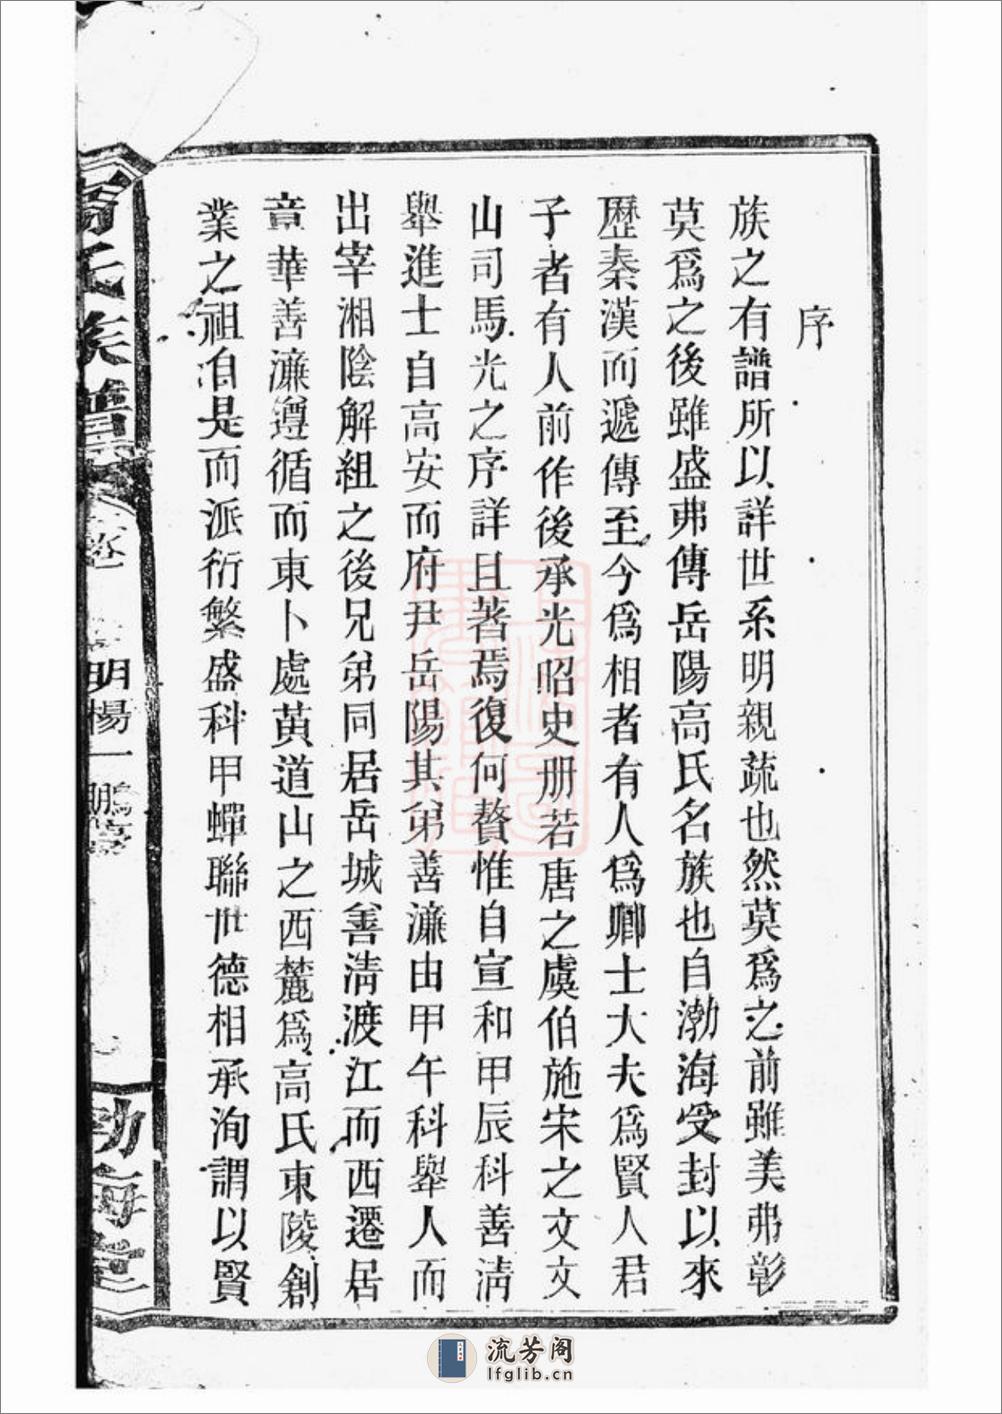 序
族之有譜所以詳世系明親疏也然莫爲之前雖美弗彰
莫爲之後雖盛弗傳岳陽高氏名族也自渤海受封以來
歷秦漢而遞傳至今爲相者有人爲卿士大夫爲賢人君
子者有人前作後承光昭史册若唐之虞伯施宋之文文
山司馬光之序詳且著焉復何贅惟自宣和甲辰科善淸
舉進士自高安而府尹岳陽其弟善濂由甲午科舉人而
出宰湘陰解組之後兄弟同居岳城善淸渡江而西遷居
章華善濂遵循而東卜處黃道山之西麓爲高氏東陵創
業之祖自是而派衍繁盛科甲蟬聯世德相承洵謂以賢
高氏族譜
卷
明楊一鵬序
渤海堂
流芳阁
lfglib.cn